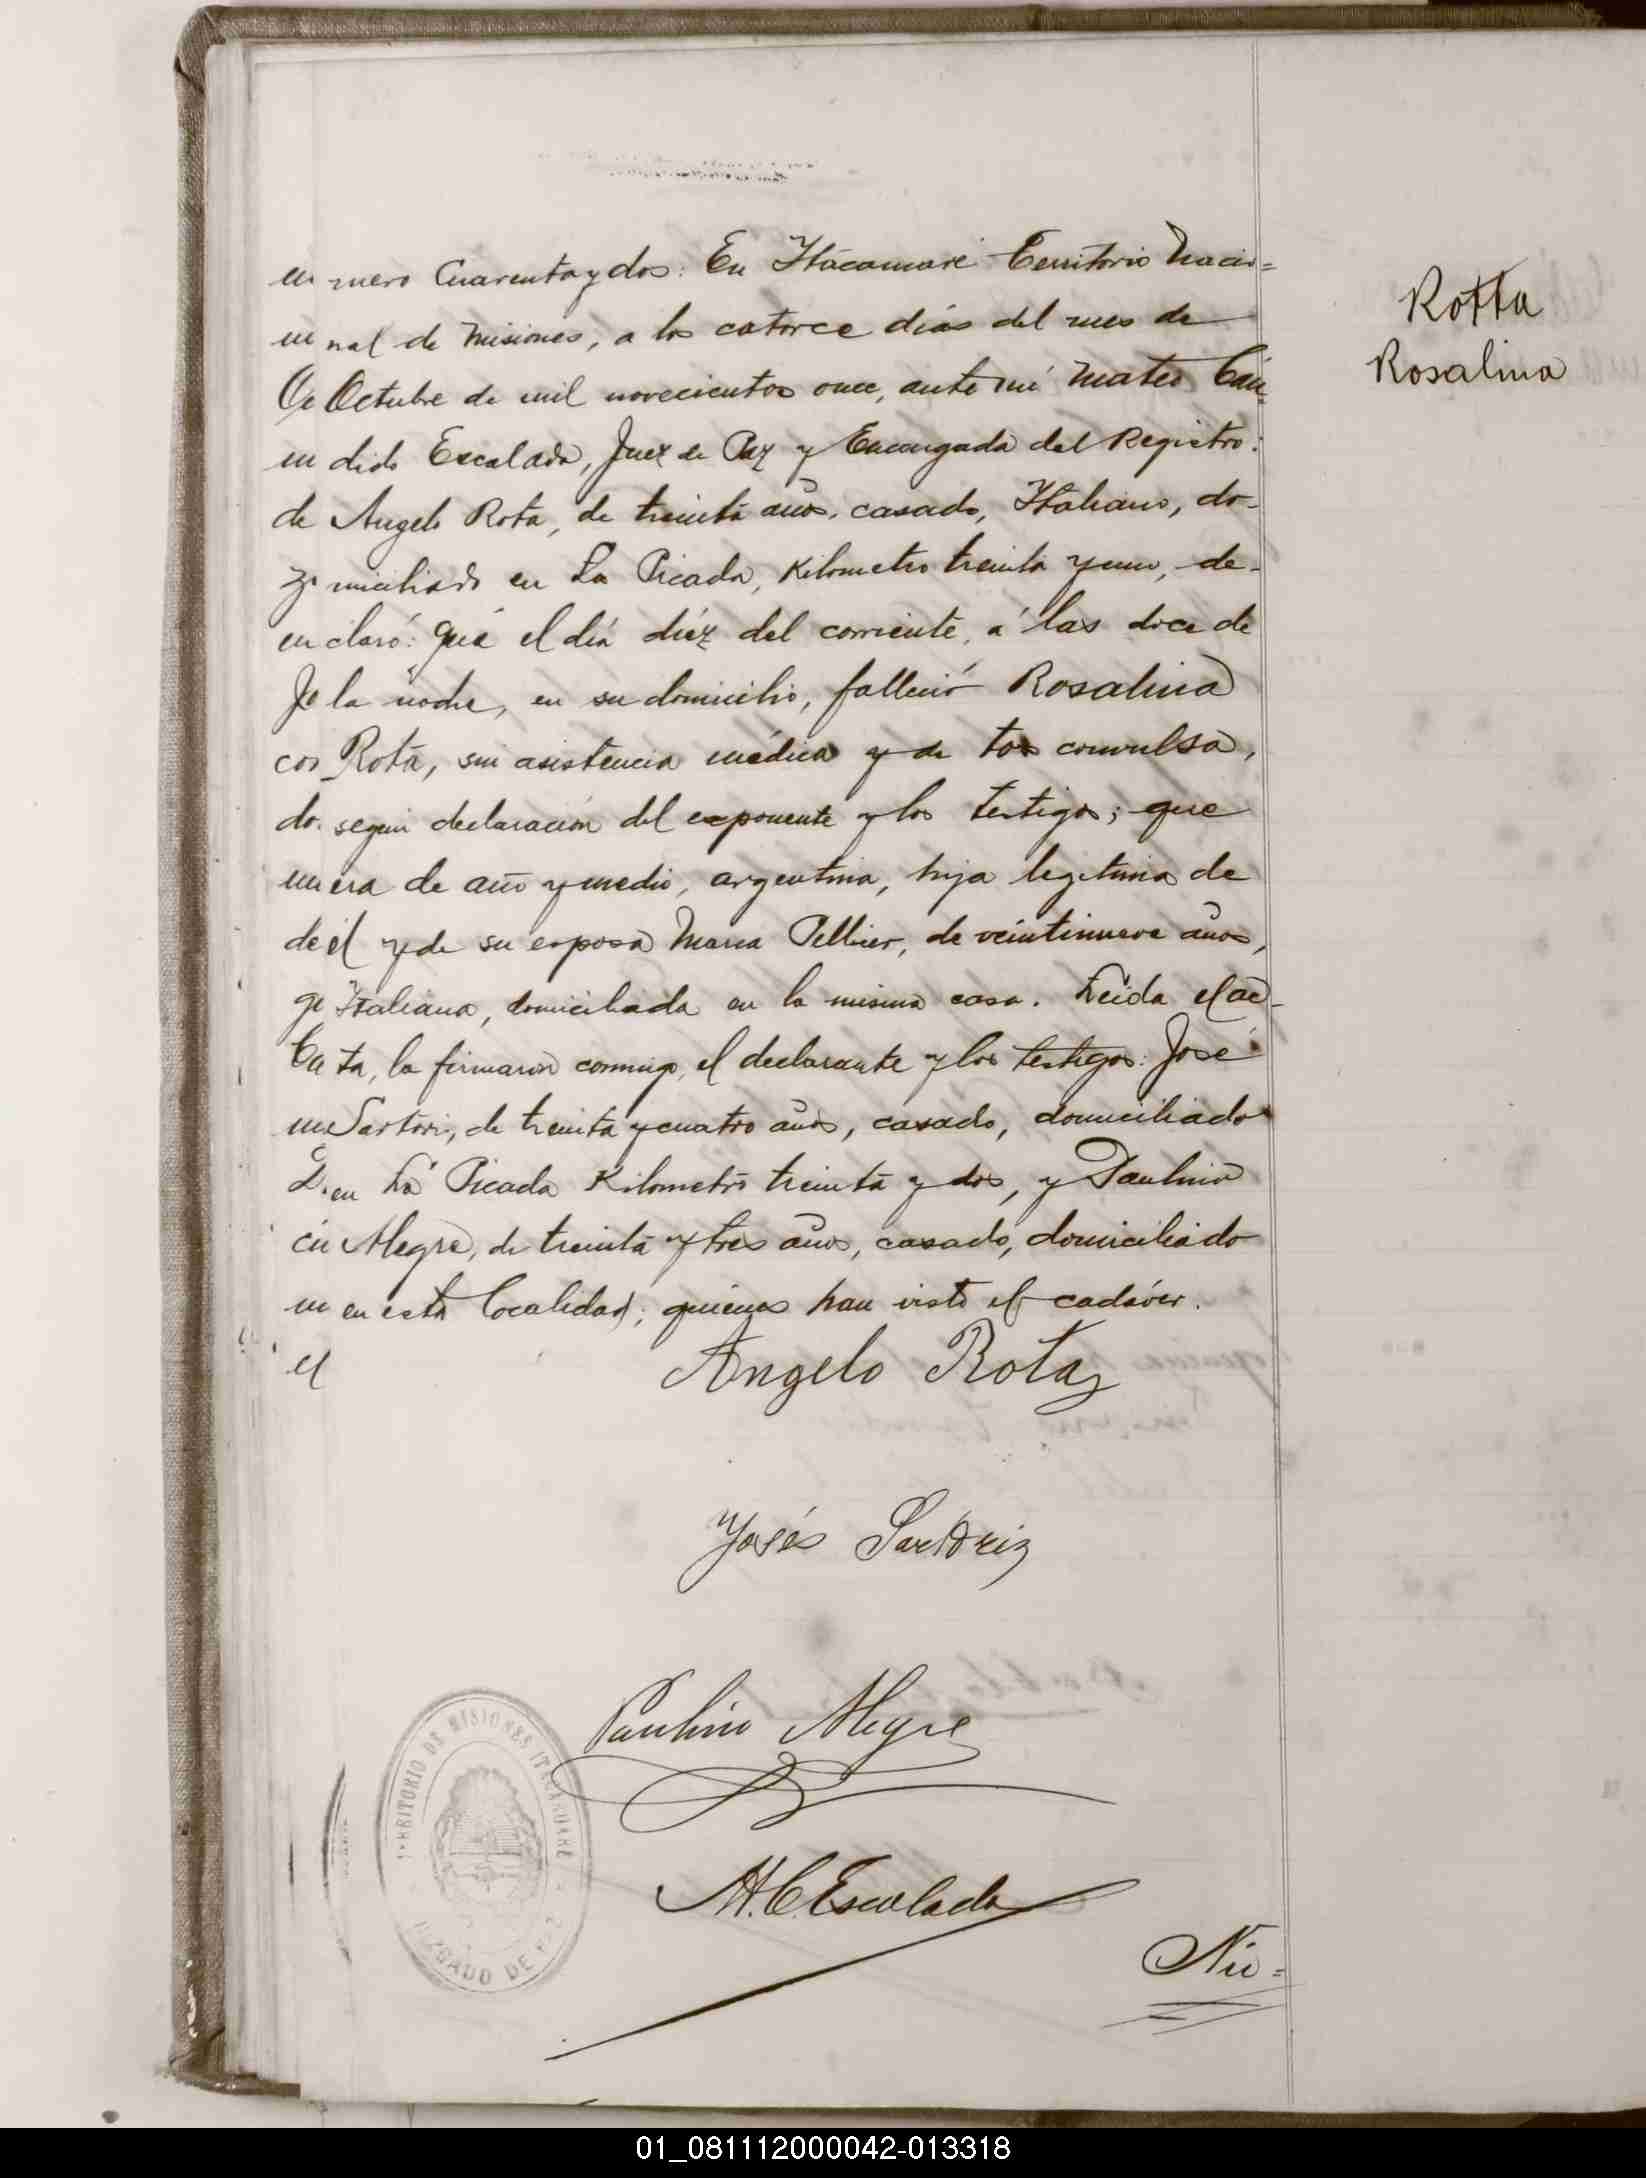 mero Cuarenta y dos: En Itacaruaré Territorio Nacio=
nal de Misiones, a los catorce días del mes de
Octubre de mil novecientos once, ante mí Mateo Cán-
dido Escalada, Juez de Paz y Encargado del Registro:
Angelo Rota, de treinta años, casado, Italiano, do-
miciliado en La Picada, Kilometro treinta y uno, de-
claró: que el día diéz del corriente, á las doce de
la noche, en su domicilio, falleció Rosalina
Rota, sin asistencia médica y de tos convulsa,
segun declaración del exponente y los testigos; que
era de año y medio, argentina, hija legitima de
él y de su esposa Maria Pellier, de veintinueve años,
Italiana, domiciliada en la misma casa. Leida el ac-
ta, la firmaron conmigo, el declarante y los testigos: José
Sartori, de treinta y cuatro años, casado, domiciliado
en La Picada Kilometro treinta y dos, y Paulino
Alegre, de treinta y tres años, casado, domiciliado
en esta localidad; quienes han visto el cadáver.
Angelo Rota
Josés Sartori
Paulino Alegre
M. C. Escalada
Nú=
Rotta
Rosalina
TERRITORIO DE MISIONES ITACARUARÉ
JUZGADO DE PAZ
01_081112000042-013318